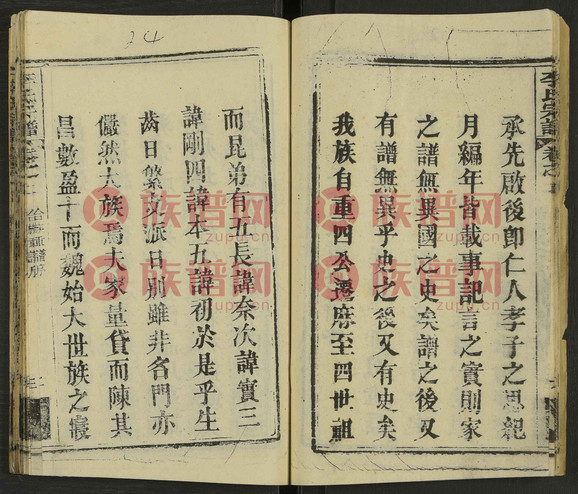 李氏宗譜
承先啟後即仁人孝子之思紀
月編年皆載事記言之實則家
之譜無異國之史矣譜之後又
有譜無異乎史之後又有史矣
我族自重四公遷席至四世祖
而昆弟有五長諱奈次諱實三
諱剛四諱本五諱初於是乎生
齒日繁分派日別雖非名門亦
儼然大族焉大家量貸而陳其
昌數盈千而魏始大世族之寢
李氏宗譜
24
族谱网
zupu.cn
族谱网
zupu.cn
族谱网
zupu.cn
族谱网
zupu.cn